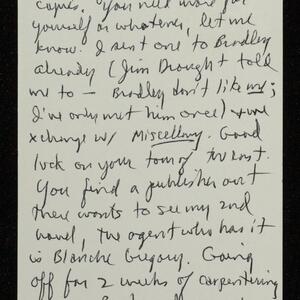 copies. You need more for
yourself or whatever, let me
know. I sent one to Bradley
already (Jim Drought told
me to — Bradley don't like me;
I've only met him once) + we
xchange w/ Miscellany. Good
luck on your tour of the east.
You find a publisher out
there wants to see my 2nd
novel, the agent who has it
is Blanche Gregory. Going
off for 2 weeks of carpentering